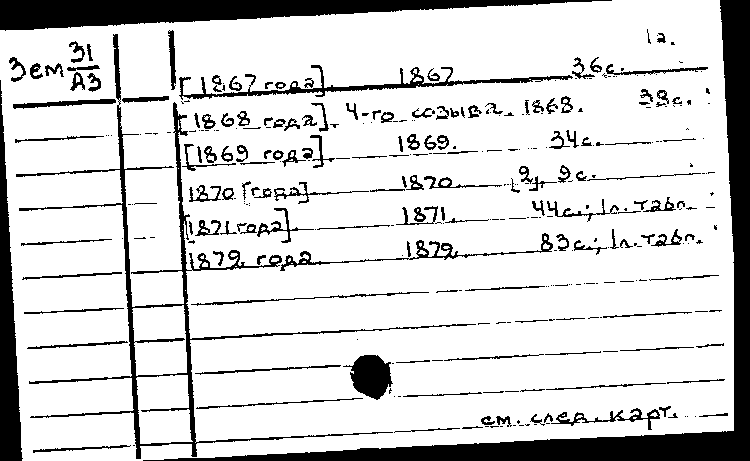 1а.
Зем 31/А3
[1867 года]. 1867. 36с.
[1868 года]. 4-го созыва. 1868. 38с.
[1869 года]. 1869. 34с.
1870 [года]. 1870. [2], 9с.
[1871 года]. 1871. 44с.; 1л. табл.
1879 года. 1879. 83с.; 1л. табл.
см. след. карт.